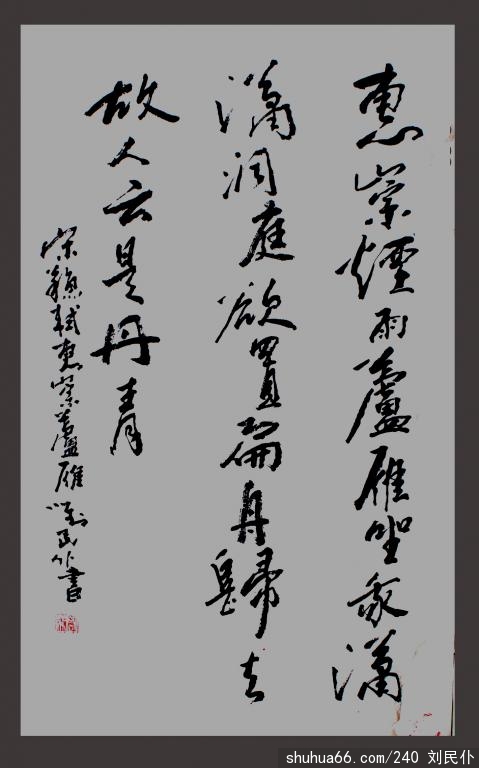 惠崇煙雨蘆雁坐我瀟
瀟洞庭欲買扁舟歸去
故人云是丹青
宋蘇軾惠崇蘆雁 劉民仆書
shuhua66.com/240 刘民仆